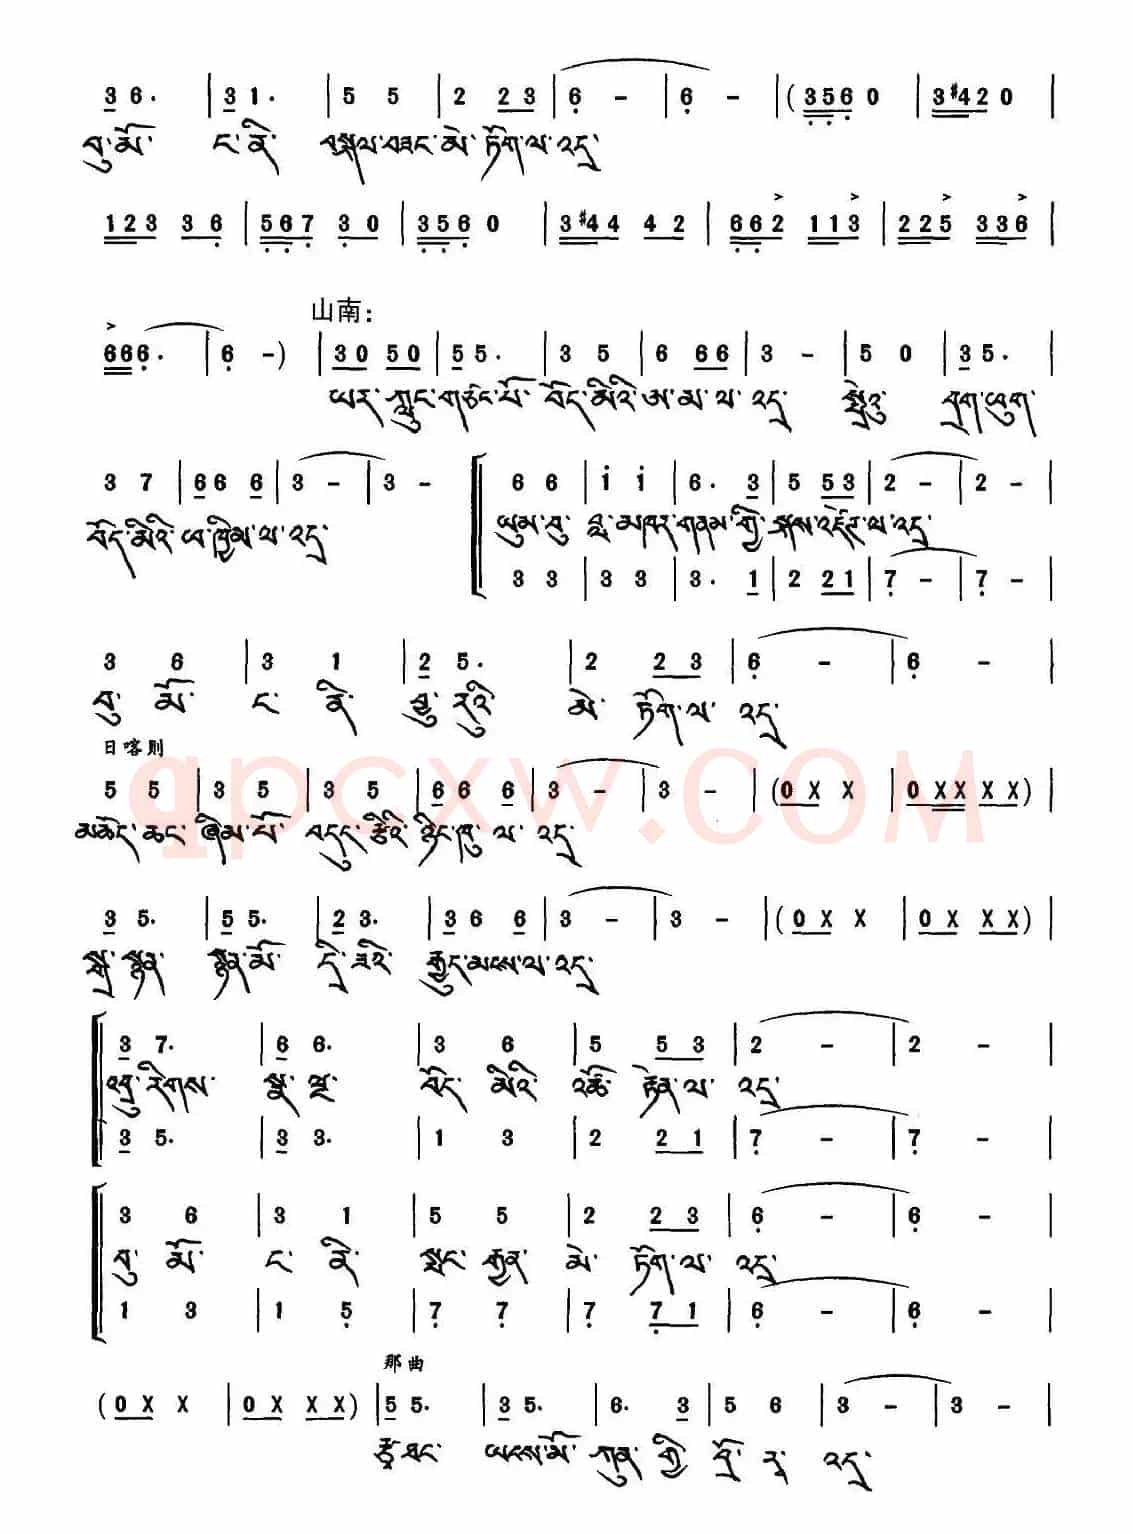 3 6· | 3 1· | 5 5 | 2 2 3 | 6 – | 6 – | (3 5 6 0 | 3 #4 2 0 |
བུ་མོ་ ང་ནི་ བསྐལ་བཟང་མེ་ཏོག་ལ་འདྲ
1 2 3 3 6 | 5 6 7 3 0 | 3 5 6 0 | 3 #4 4 4 2 | 6 6 2 1 1 3 | 2 2 5 3 3 6 |
山南：
6 6 6· | 6 –) | 3 0 5 0 | 5 5· | 3 5 | 6 6 6 | 3 – | 5 0 | 3 5· |
ཡར་ཀླུང་གཙང་པོ་ བོད་མིའི་ཨ་མ་ལ་འདྲ སྤྲེའུ་ བྲག་ཕུག་
3 7 | 6 6 6 | 3 – | 3 – | 6 6 | i i | 6· 3 | 5 5 3 | 2 – | 2 – |
བོད་མིའི་ཕ་ཁྱིམ་ལ་འདྲ ཡུམ་བུ་ བླ་མཁར་གནམ་གྱི་སྐས་འཛེག་ལ་འདྲ
3 3 | 3 3 | 3· 1 | 2 2 1 | 7 – | 7 – |
3 6 | 3 1 | 2 5· | 2 2 3 | 6 – | 6 – |
བུ་ མོ་ ང་ ནི་ བྱུ་རུའི་ མེ་ ཏོག་ལ་ འདྲ
日喀则
5 5 | 3 5 | 3 5 | 6 6 6 | 3 – | 3 – | (0 X X | 0 X X X X) |
མཆོད་ཆང་ཞིམ་པོ་ བདུད་རྩིའི་ ཉིང་ཁུ་ ལ་ འདྲ
3 5· | 5 5· | 2 3· | 3 6 6 | 3 – | 3 – | (0 X X | 0 X X X) |
སྒྲ་སྙན་ སྙན་མོ་ དྲི་ཟའི་ རྒྱུད་མངས་ལ་འདྲ
3 7· | 6 6· | 3 6 | 5 5 3 | 2 – | 2 – |
འབྲུ་རིགས་ སྣ་ལྔ་ བོད་ མིའི་ འཚོ་ རྟེན་ལ་ འདྲ
3 5· | 3 3· | 1 3 | 2 2 1 | 7 – | 7 – |
3 6 | 3 1 | 5 5 | 2 2 3 | 6 – | 6 – |
བུ་ མོ་ ང་ ནི་ སྤང་ རྒྱན་ མེ་ ཏོག་ལ་ འདྲ
1 3 | 1 5 | 7 7 | 7 7 1 | 6 – | 6 – |
那曲
(0 X X | 0 X X X) | 5 5· | 3 5· | 6· 3 | 5 6 | 3 – | 3 – |
རྩྭ་ཐང་ ཡངས་མོ་ ཀུན་ གྱི་ བྲོ་ ར་ འདྲ
qpcxw.COM